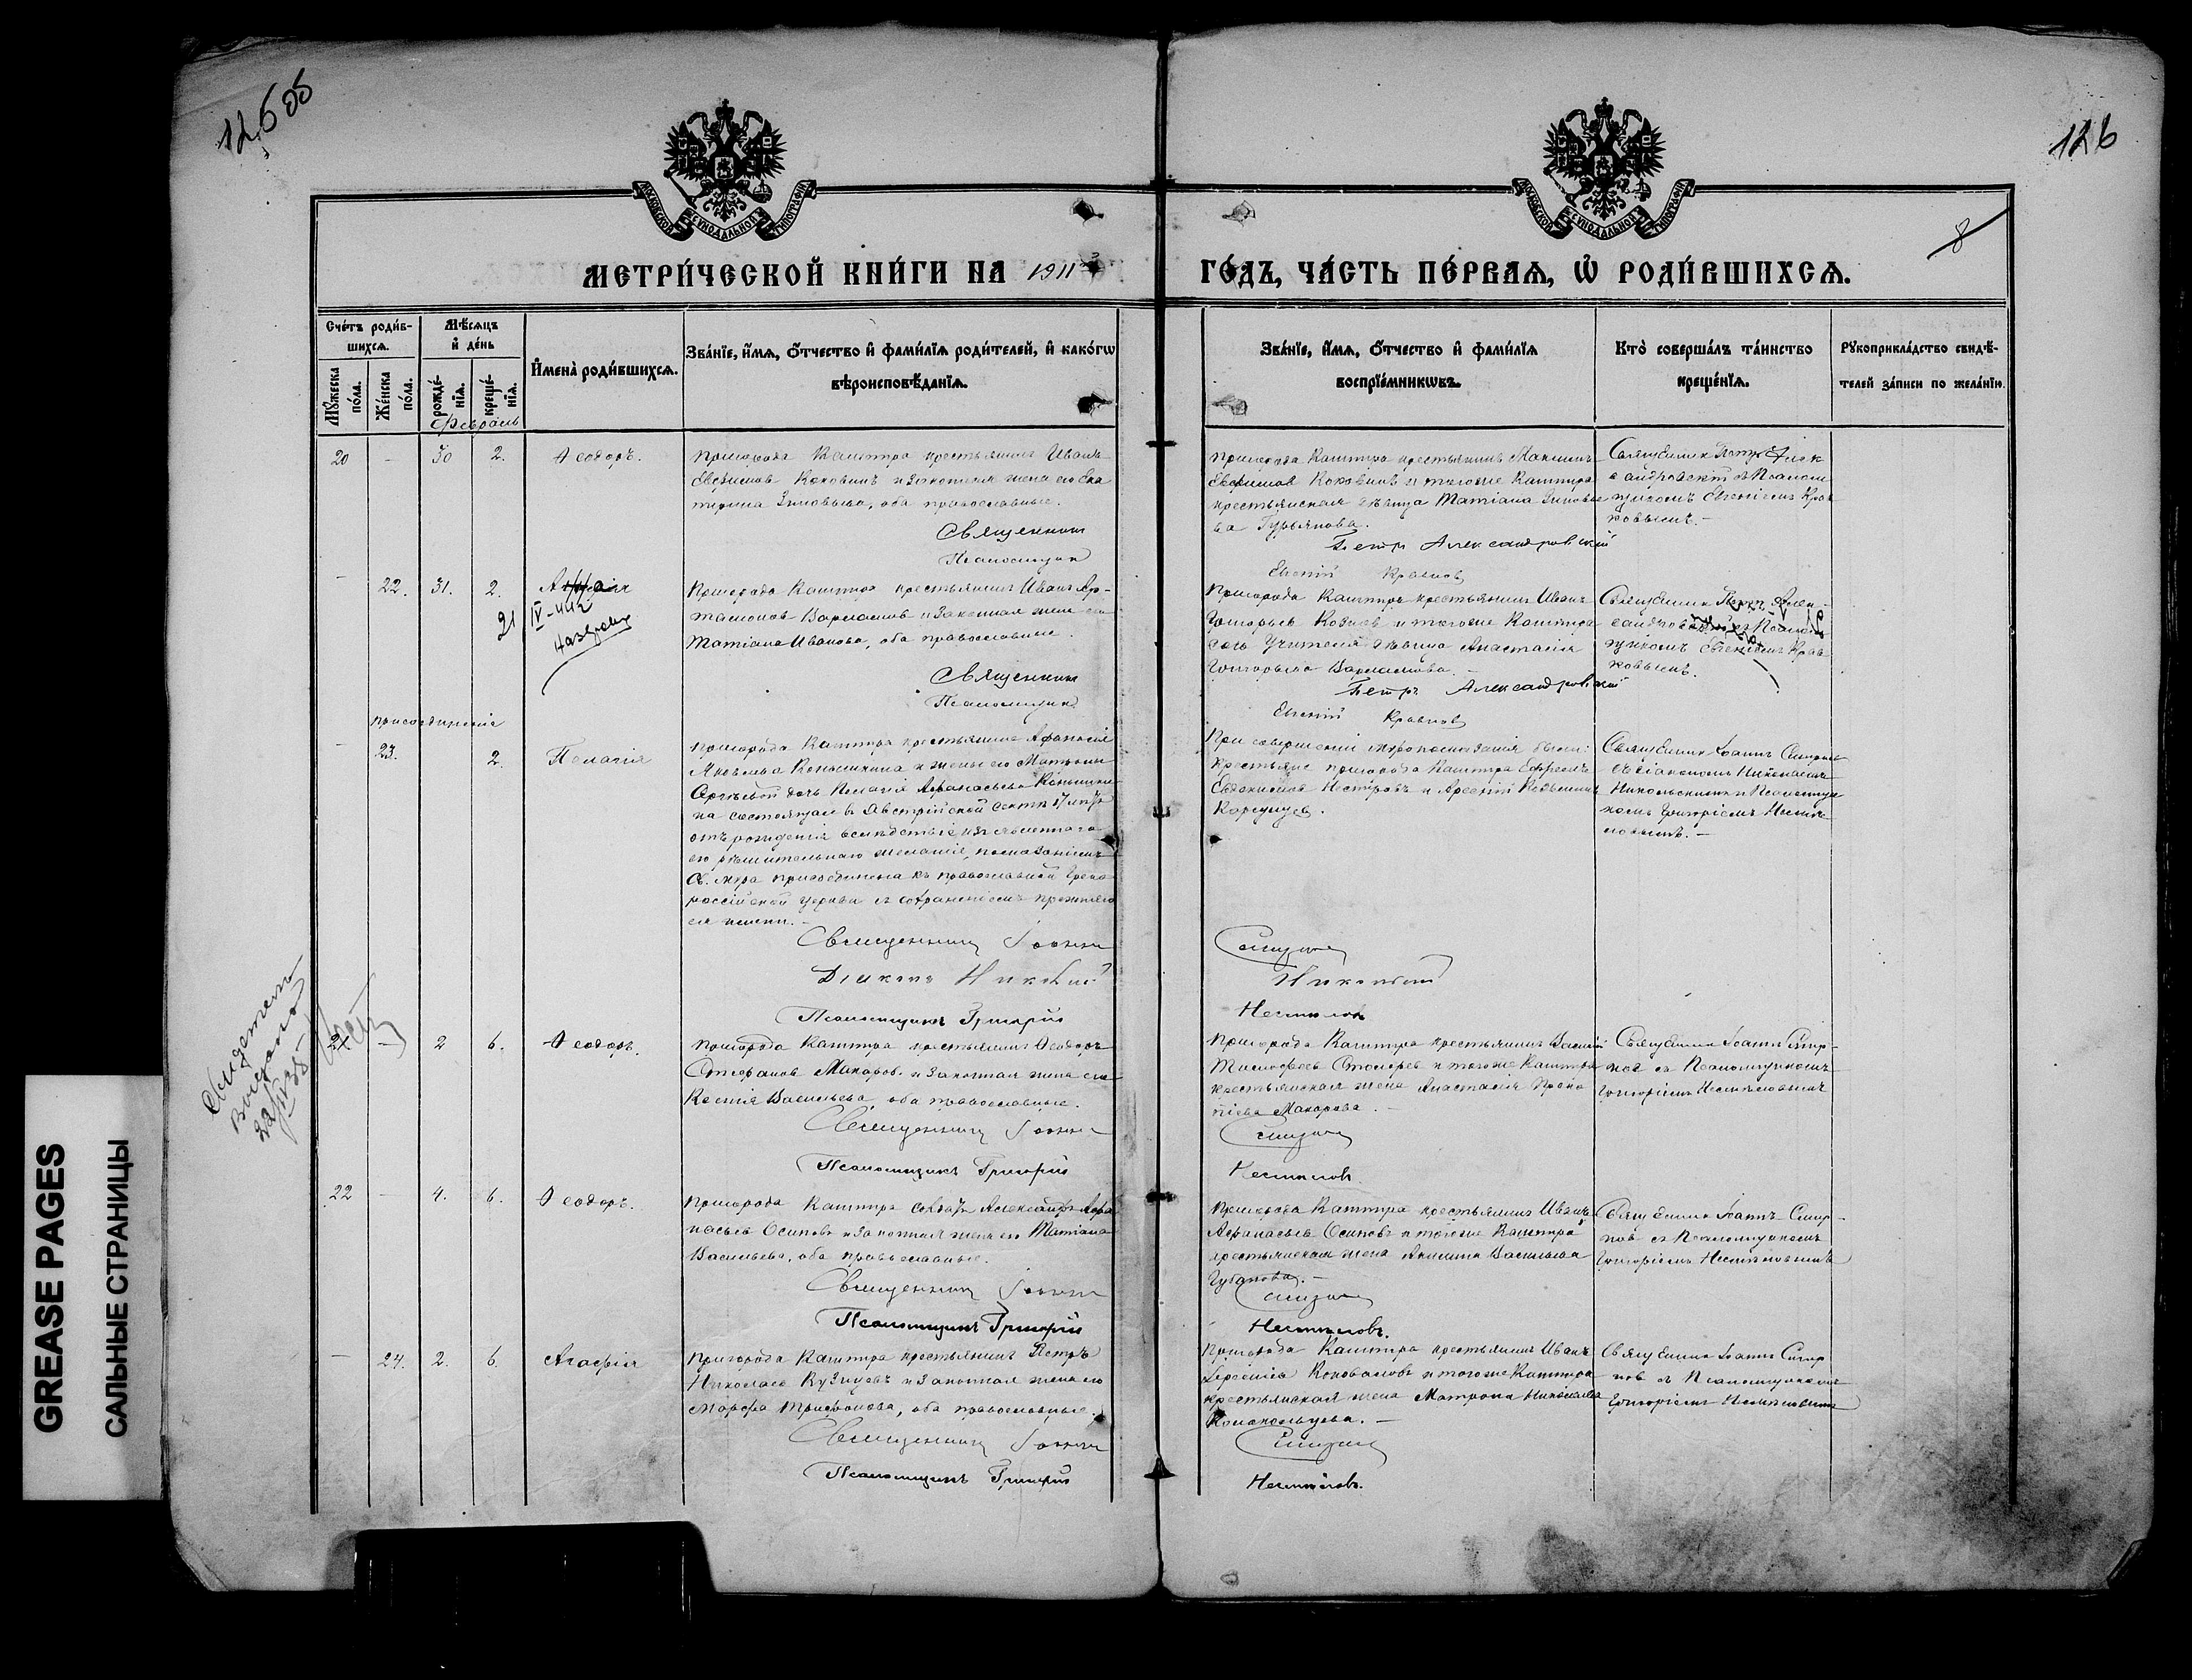 12505
126
8
МОСКОВСКОЙ СУНОДАЛЬНОЙ ТИПОГРАФІИ
МОСКОВСКОЙ СУНОДАЛЬНОЙ ТИПОГРАФІИ
МЕТРИ́ЧЕСКОЙ КНИ́ГИ НА 1911
ГО́ДЪ, ЧА́СТЬ ПЕ́РВАѦ, Ѡ҆ РОДИ́ВШИХСѦ.
Сче́тъ роди́в-
шихсѧ.
Мѣ́сѧцъ
и҆ де́нь
Мꙋ́жеска
по́ла.
Же́нска
по́ла.
рожде́-
нїѧ.
креще́-
нїѧ.
И҆мена̀ роди́вшихсѧ.
Зва́нїе, и҆́мѧ, ѻ҆́тчество и҆ фами́лїѧ роди́телей, и҆ како́гѡ
вѣроисповѣ́данїѧ.
Зва́нїе, и҆́мѧ, ѻ҆́тчество и҆ фами́лїѧ
воспрїе́мникѡвъ.
Кто̀ соверша́лъ та́инство
креще́нїѧ.
Рꙋкоприкла́дство свидѣ́-
телей за́писи по жела́нїю.
Февраль
20 - 30 2. Ѳеодоръ.
Пригорода Кашпира крестьянинъ Иванъ
Евфимовъ Коковинъ и законная жена его Ека
терина Зиновьева, оба православные.
Священник
Псаломщик
Пригорода Кашпира крестьянинъ
Евфимов Коковинъ и тогоже Кашпира
крестьянская девица Татиана Зиновье
ва Гурьянова.
Петр Александровский
Евгений Кравков
Священник Петр Алек
сандровский с Псалом
щиком Евгением Крав
ковымъ.-
- 22. 31. 2.
21 IV-44г
Пригорода Кашпира крестьянинъ Иванъ Ар-
тамонов Варламов и законная жена его
Татиана Иванова, оба православные.
Священник
Псаломщик
Пригорода Кашпира крестьянинъ Иванъ
Григорьев Козлов и тогоже Кашпира
дочь Учителя девица Анастасия
Григорьева Варламова.-
Петръ Александровский
Евгений Кравков
Священник Петр Алек-
ковымъ.
присоединение
- 23. 2. Пелагія
Пригорода Кашпира крестьянина Афанасия
Яковлева Конышкина и жены его Матроны
Сергѣевой дочь Пелагия Афанасьева Конышки-
на состоящая в Австрийской секте 17 летъ
отъ рождения вследствие изъявленнаго
ею решительнаго желания, помазанием
Св. мѵра присоединена къ православной Греко
российской церкви съ сохранением прежняго
ея имени.-
Священник Іоаннъ
Діаконъ Николай
Псаломщикъ Григорій
При совершеніи мѵропомазанія были:
Крестьяне пригорода Кашпира Ефремъ
Евдокимов Нестеровъ и Арсений
Смирнов
Никольский
Священник Іоаннъ Смирнов
с діакономъ Николаемъ
Никольскимъ и Псаломщи
комъ Григоріемъ
21 - 2 6. Ѳеодоръ.
Пригорода Кашпира крестьянинъ Ѳеодоръ
Стефанов Макаров. и законная жена его
Ксенія Васильева, оба православные.
Священник Іоаннъ
Псаломщикъ Григорій
Пригорода Кашпира крестьянинъ Василий
Тимофеев Столяревъ и тогоже Кашпира
крестьянская жена Анастасія Проко
піева Макарова.-
Смирнов
Священник Іоаннъ Смир-
нов с Псаломщикомъ
22 - 4. 6. Ѳеодоръ.
Пригорода Кашпира солдатъ Александръ Афа
насьев Осиповъ и законная жена его Татиана
Васильева, оба православные.
Священник Іоаннъ
Псаломщикъ Григорій
Пригорода Кашпира крестьянинъ Иванъ
Афанасьев Осиповъ и тогоже Кашпира
крестьянская жена Акилина Васильева
Губанова.-
Смирнов
Священник Іоаннъ Смир-
нов с Псаломщикомъ
- 24. 2. 6. Агафія
Пригорода Кашпира крестьянинъ Петръ
Николаев Кузнецовъ и законная жена его
Марфа Трифонова, оба православные.
Священник Іоаннъ
Псаломщикъ Григорій
Пригорода Кашпира крестьянинъ Иванъ
Коновалов и тогоже Кашпира
крестьянская жена Матрона Николаева
Смирнов
Священник Іоаннъ Смир
нов с Псаломщикомъ
GREASE PAGES
САЛЬНЫЕ СТРАНИЦЫ